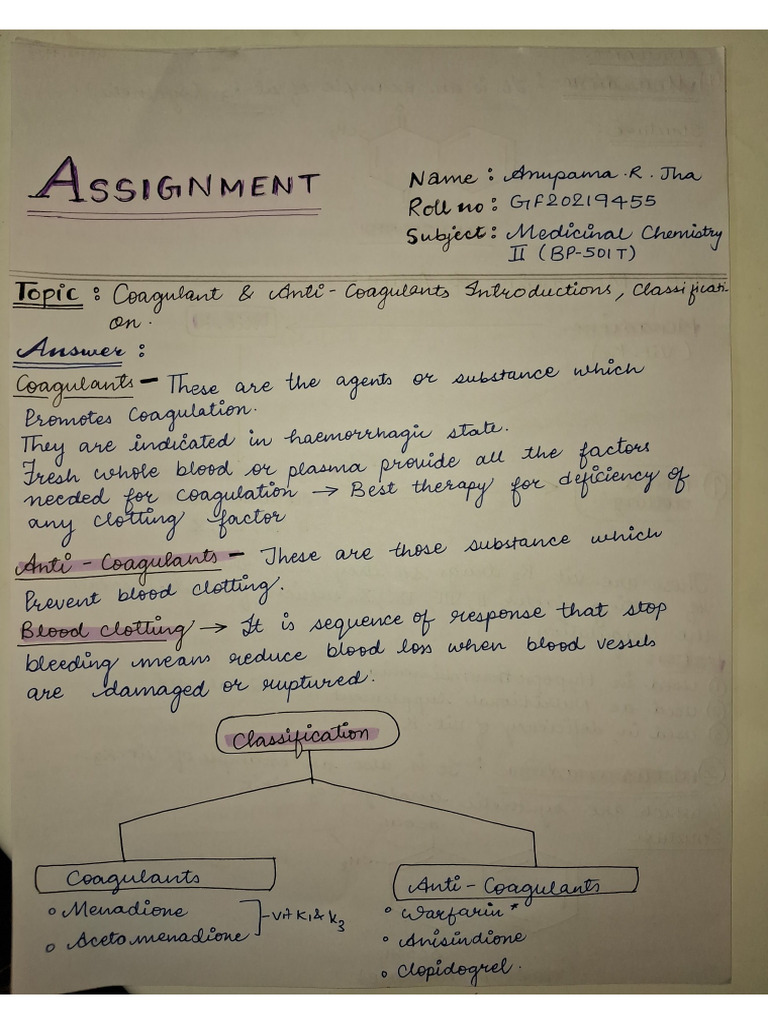 ASSIGNMENT
Name : Anupama . R . Jha
Roll no : GF20219455
Subject : Medicinal Chemistry
II (BP-501T)
Topic : Coagulant & Anti-Coagulants Introductions, Classificati-
on.
Answer :
Coagulants - These are the agents or substance which
Promotes Coagulation.
They are indicated in haemorrhagic state.
Fresh whole blood or plasma provide all the factors
needed for coagulation → Best therapy for deficiency of
any clotting factor
Anti - Coagulants - These are those substance which
Prevent blood clotting.
Blood clotting → It is sequence of response that stop
bleeding means reduce blood loss when blood vessels
are damaged or ruptured.
Classification
Coagulants
Anti - Coagulants
Menadione
Acetomenadione
- vit K1 & K3
Warfarin *
Anisindione
Clopidogrel .